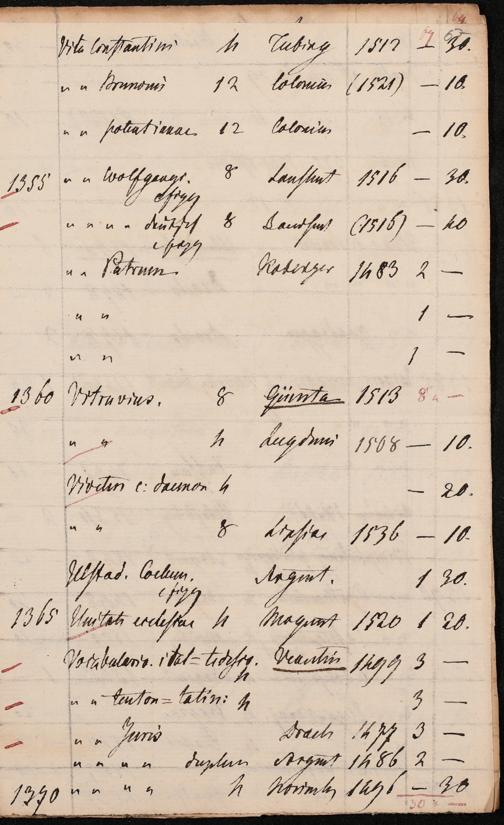 Vita Constantini 4 Tubing 1512 — 30.
" " Brunonis 12 Colonius (1521) — 10.
" " potentianae 12 Colonius — 10.
1355 " " Wolfgangi. 8 Landshut 1516 — 30.
" " " " deutsch 8 Landshut (1516) — 40
" " Patrum Koberger 1483 2 —
" " 1 —
" " 1 —
1360 Vitruvius. 8 Giunta 1513 8 " —
" " 4 Lugduni 1508 — 10.
c: daemon 4 — 20.
" " 8 Lipsiae 1536 — 10.
Ulstad. Coelum. Argent. 1 30.
1365 Unitate ecclesiae 4 Mogunt 1520 1 20.
Vocabulario. ital= tedesq. 4 Venetiis 1499 3 —
" " teuton= latin: 4 3 —
" " Juris Drach 1477 3 —
" " " " duplum Argent 1486 2 —
1370 " " " " 4 Norimb 1496 — 30